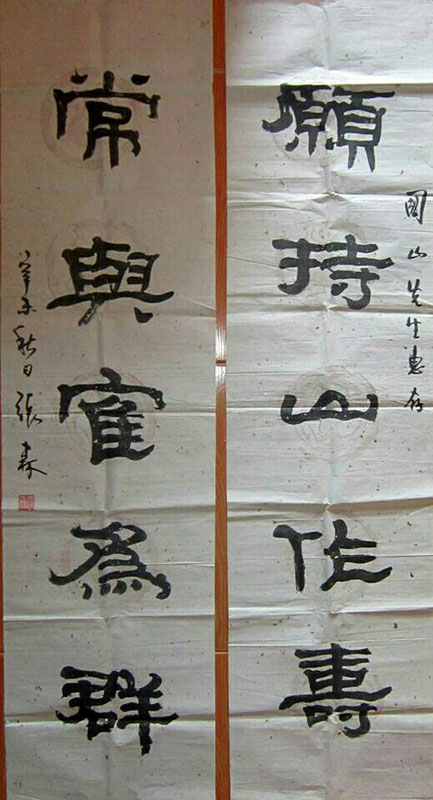 願持山作壽
國山先生惠存
常與寉爲群
辛未秋日張森